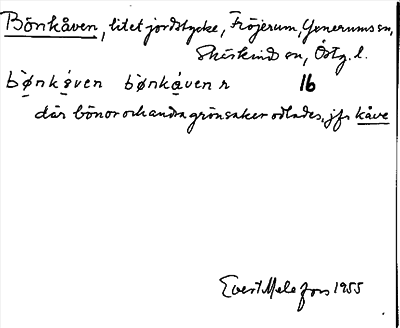 Bönkåven, litet jordstycke, Fröjerum, Yxnerums sn,
Skärkind sn, Östg. l.
bönkåven bönkåven r 16
där bönor och andra grönsaker odlades, jfr kåve
Evert Melefors 1955